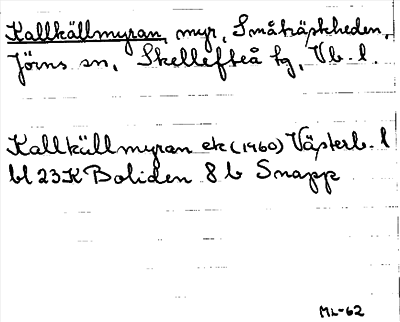 Kallkällmyran, myr, Småträskheden,
Jörns sn, Skellefteå tg, Vb. l.
Kallkällmyran ek (1960) Västerb. l
bl 23K Boliden 8 b Snapp
ML-62